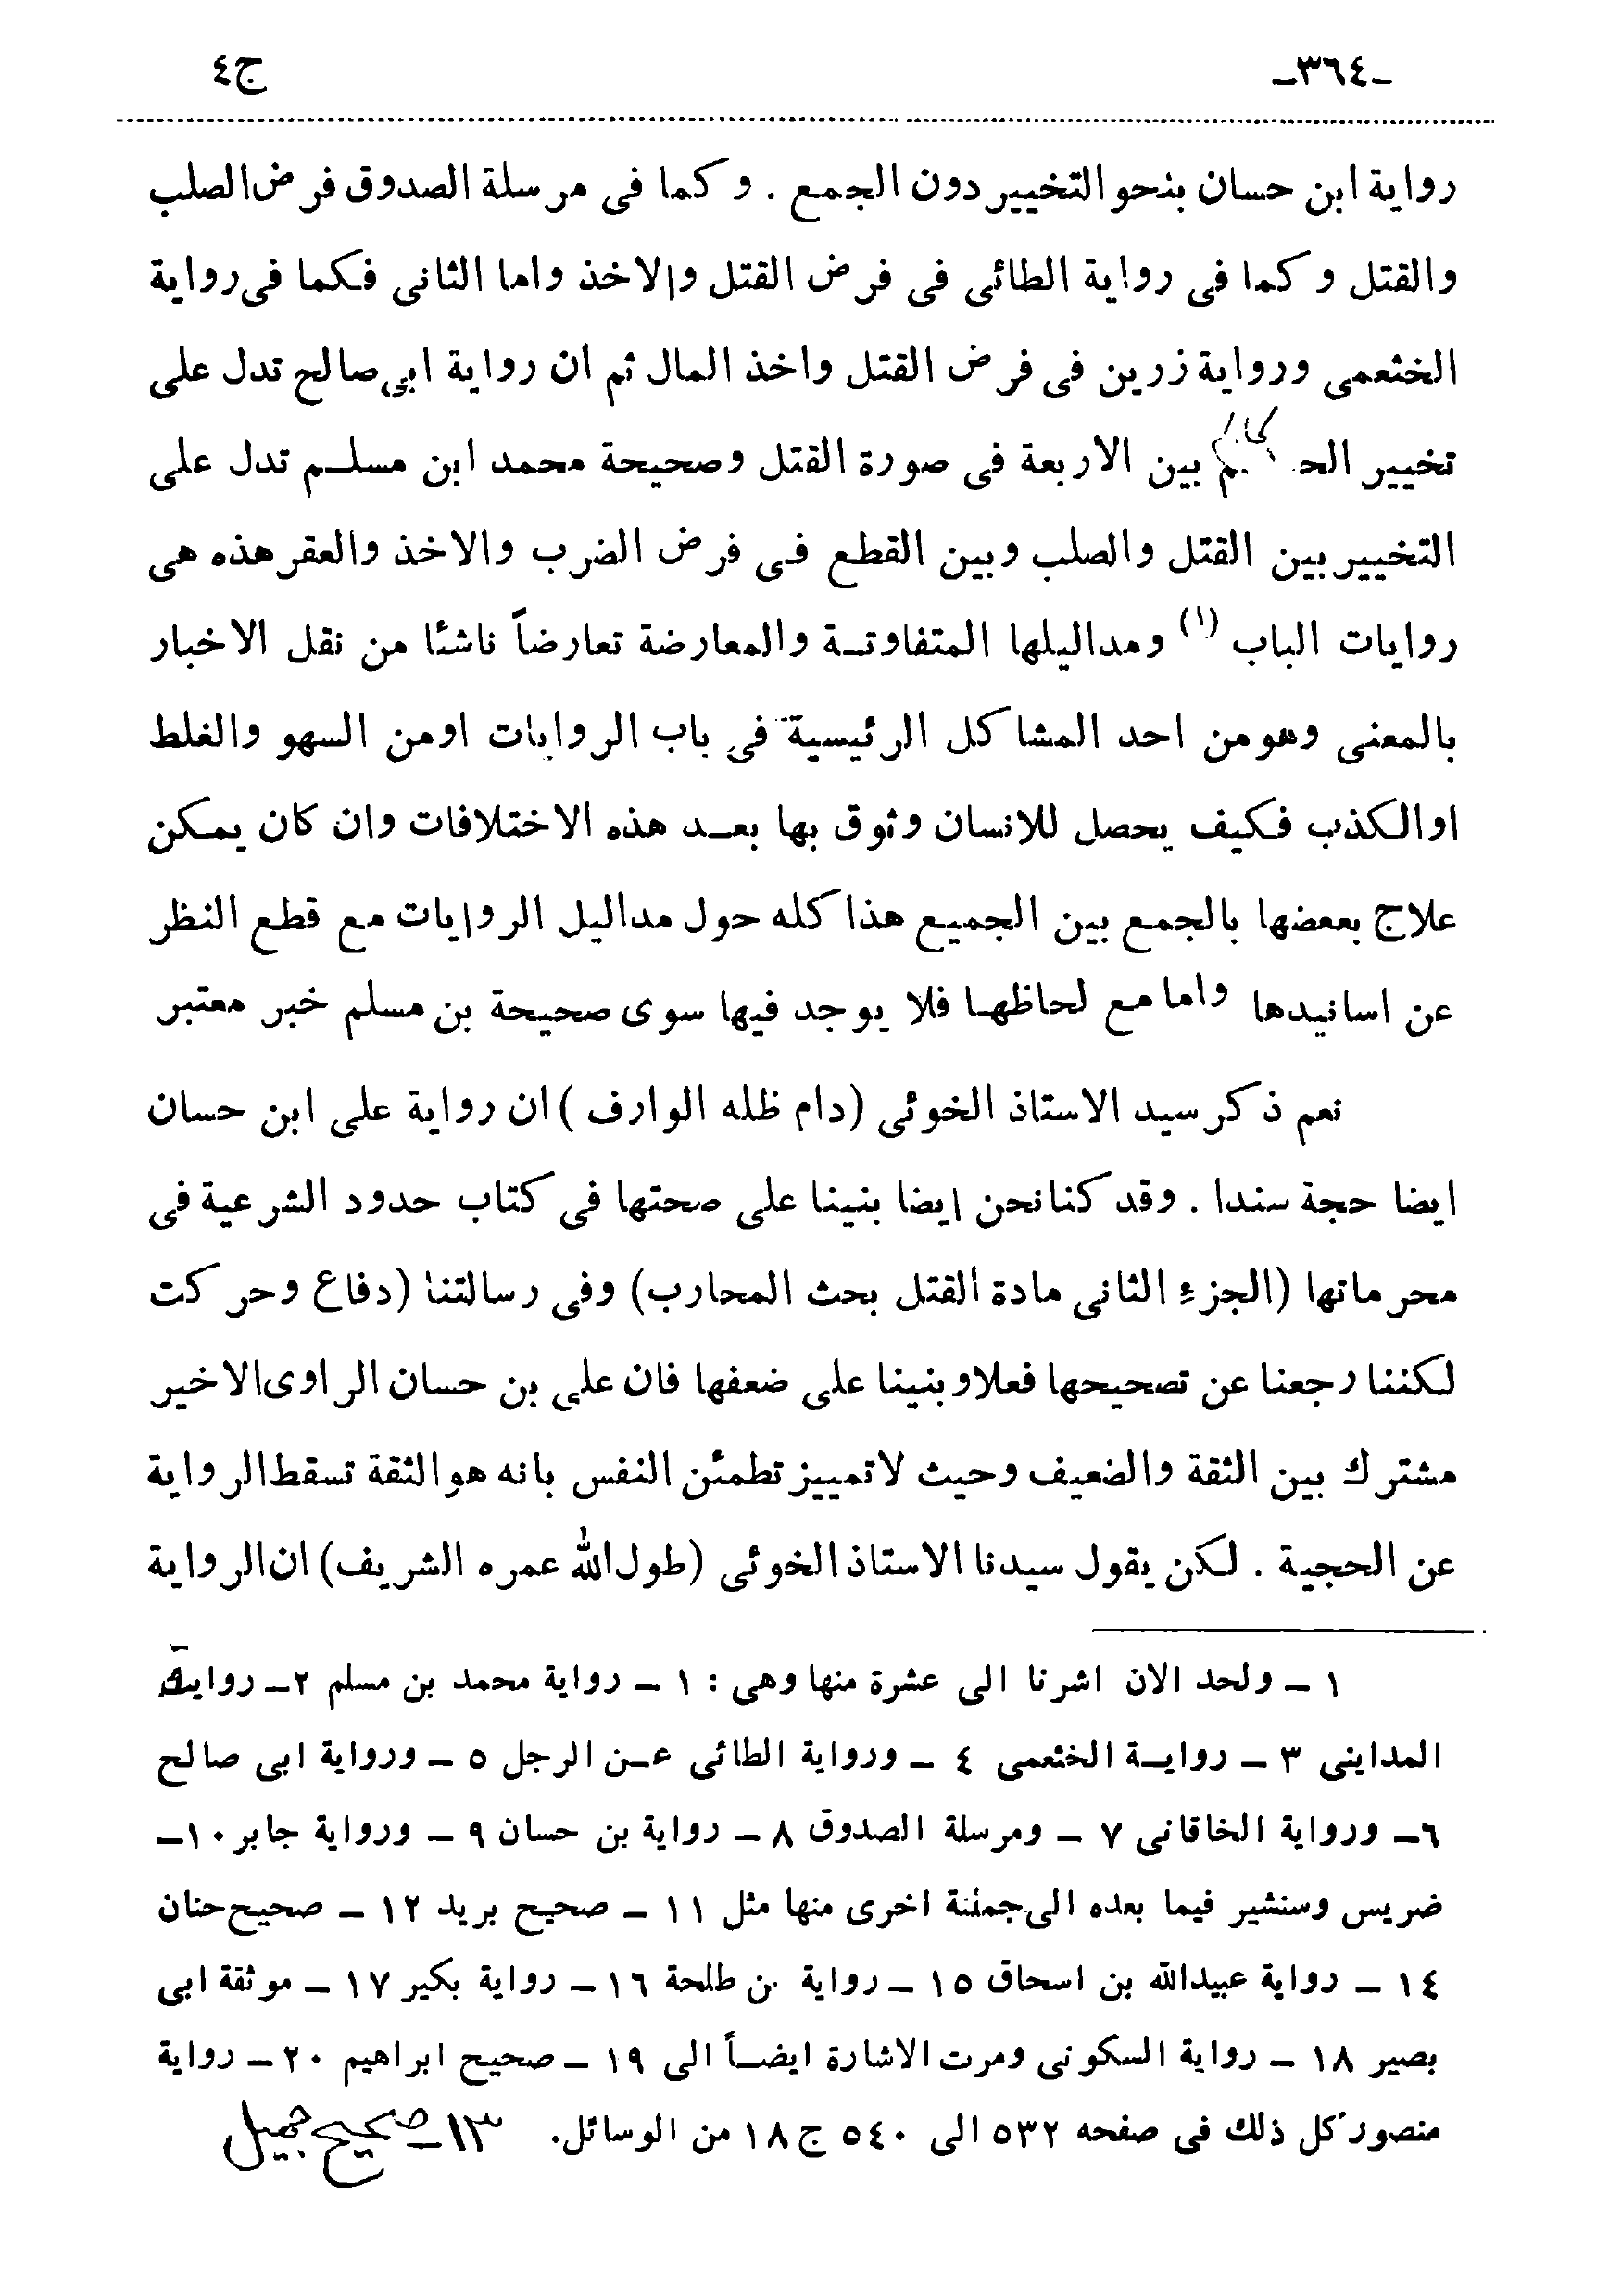 -٣٦٤- ج٤
رواية ابن حسان بنحو التخيير دون الجمع . وكما فى مرسلة الصدوق فرض الصلب
والقتل وكما فى رواية الطائى فى فرض القتل والاخذ واما الثانى فكما فى رواية
الخثعمى ورواية زرين فى فرض القتل واخذ المال ثم ان رواية ابى صالح تدل على
تخيير الحاكم بين الاربعة فى صورة القتل وصحيحة محمد ابن مسلم تدل على
التخيير بين القتل والصلب وبين القطع فى فرض الضرب والاخذ والعقر هذه هى
روايات الباب (١) ومداليلها المتفاوتة والمعارضة تعارضاً ناشئا من نقل الاخبار
بالمعنى وهو من احد المشاكل الرئيسية فى باب الروايات او من السهو والغلط
او الكذب فكيف يحصل للانسان وثوق بها بعد هذه الاختلافات وان كان يمكن
علاج بعضها بالجمع بين الجميع هذا كله حول مداليل الروايات مع قطع النظر
عن اسانيدها واما مع لحاظها فلا يوجد فيها سوى صحيحة بن مسلم خبر معتبر
نعم ذكر سيد الاستاذ الخوئى (دام ظله الوارف) ان رواية على ابن حسان
ايضا حجة سندا . وقد كنا نحن ايضا بنينا على صحتها فى كتاب حدود الشرعية فى
محرماتها (الجزء الثانى مادة القتل بحث المحارب) وفى رسالتنا (دفاع وحركت
لكننا رجعنا عن تصحيحها فعلا وبنينا على ضعفها فان على بن حسان الراوى الاخير
مشترك بين الثقة والضعيف وحيث لا تمييز تطمئن النفس بانه هو الثقة تسقط الرواية
عن الحجية . لكن يقول سيدنا الاستاذ الخوئى (طول الله عمره الشريف) ان الرواية
١ - ولحد الان اشرنا الى عشرة منها وهى : ١ - رواية محمد بن مسلم ٢- رواية
المداينى ٣ - رواية الخثعمى ٤ - ورواية الطائى عن الرجل ٥ - ورواية ابى صالح
٦- ورواية الخاقانى ٧ - ومرسلة الصدوق ٨ - رواية بن حسان ٩ - ورواية جابر ١٠-
ضريس وسنشير فيما بعده الى جملة اخرى منها مثل ١١ - صحيح بريد ١٢ - صحيح حنان
١٤ - رواية عبيدالله بن اسحاق ١٥ - رواية بن طلحة ١٦ - رواية بكير ١٧ - موثقة ابى
بصير ١٨ - رواية السكونى ومرت الاشارة ايضاً الى ١٩ - صحيح ابراهيم ٢٠ - رواية
منصور كل ذلك فى صفحه ٥٣٢ الى ٥٤٠ ج ١٨ من الوسائل. ١٣- صحيح جميل